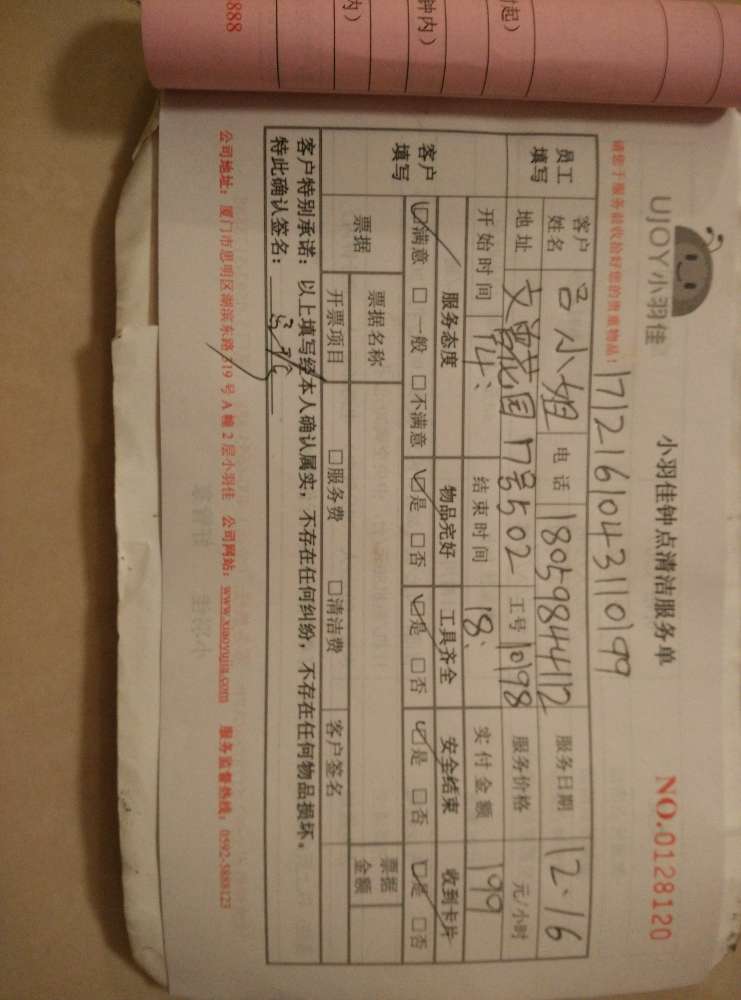 UJOY小羽佳
小羽佳钟点清洁服务单
NO.0128120
请您于服务前收拾好您的贵重物品！
171216104311099
员工填写
客户姓名 吕小姐 电话 18059844112 服务日期 12.16
地址 文曾花园17号502 工号 10198 服务价格 元/小时
开始时间 14: 结束时间 18: 实付金额 199
客户填写
服务态度 物品完好 工具齐全 安全结束 收到卡片
☑满意 □一般 □不满意 ☑是 □否 ☑是 □否 ☑是 □否 ☑是 □否
票据 票据名称 票据金额
开票项目 □服务费 □清洁费 客户签名
客户特别承诺：以上填写经本人确认属实，不存在任何纠纷，不存在任何物品损坏。
特此确认签名：
公司地址：厦门市思明区湖滨东路319号A幢2层小羽佳 公司网站：www.xiaoyujia.com 服务监督热线：0592-5888123
起)
钟内)
内)
888